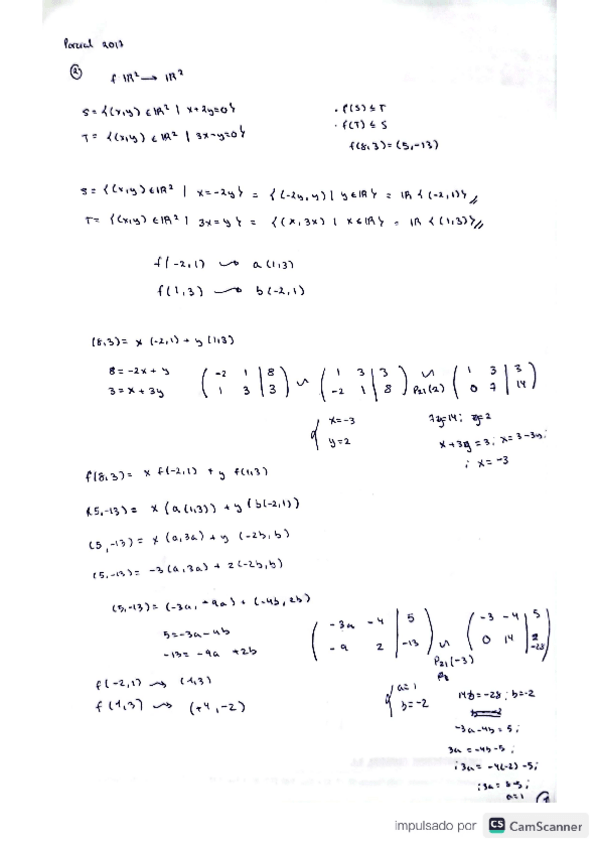 Parcial 2017
② f ℝ² → ℝ²
S = {(x,y) ∈ ℝ² | x+2y=0}
T = {(x,y) ∈ ℝ² | 3x-y=0}
· f(S) ≤ T
· f(T) ≤ S
f(8,3) = (5,-13)
S = {(x,y) ∈ ℝ² | x=-2y} = {(-2y,y) | y ∈ ℝ} = ℝ {(-2,1)} //
T = {(x,y) ∈ ℝ² | 3x=y} = {(x,3x) | x ∈ ℝ} = ℝ {(1,3)} //
f(-2,1) ⤳ a(1,3)
f(1,3) ⤳ b(-2,1)
(8,3) = x(-2,1) + y(1,3)
8 = -2x + y
3 = x + 3y
( -2 1 | 8 ) ∼ ( 1 3 | 3 ) ∼ ( 1 3 | 3 )
( 1 3 | 3 ) ( -2 1 | 8 ) P₂₁(2) ( 0 7 | 14 )
x=-3
y=2
7y=14; y=2
x+3y=3; x=3-3y;
; x=-3
f(8,3) = x f(-2,1) + y f(1,3)
(5,-13) = x(a(1,3)) + y(b(-2,1))
(5,-13) = x(a,3a) + y(-2b,b)
(5,-13) = -3(a,3a) + 2(-2b,b)
(5,-13) = (-3a, -9a) + (-4b, 2b)
5=-3a-4b
-13= -9a +2b
( -3a -4 | 5 ) ∼ ( -3 -4 | 5 )
( -9 2 | -13 ) P₂₁(-3) ( 0 14 | -28 )
f(-2,1) ⤳ (1,3)
f(1,3) ⤳ (+4,-2)
a=1
b=-2
14b=-28; b=-2
-3a-4b=5;
3a=-4b-5;
; 3a=-4(-2)-5;
; 3a= 8-5;
a=1
impulsado por CS CamScanner